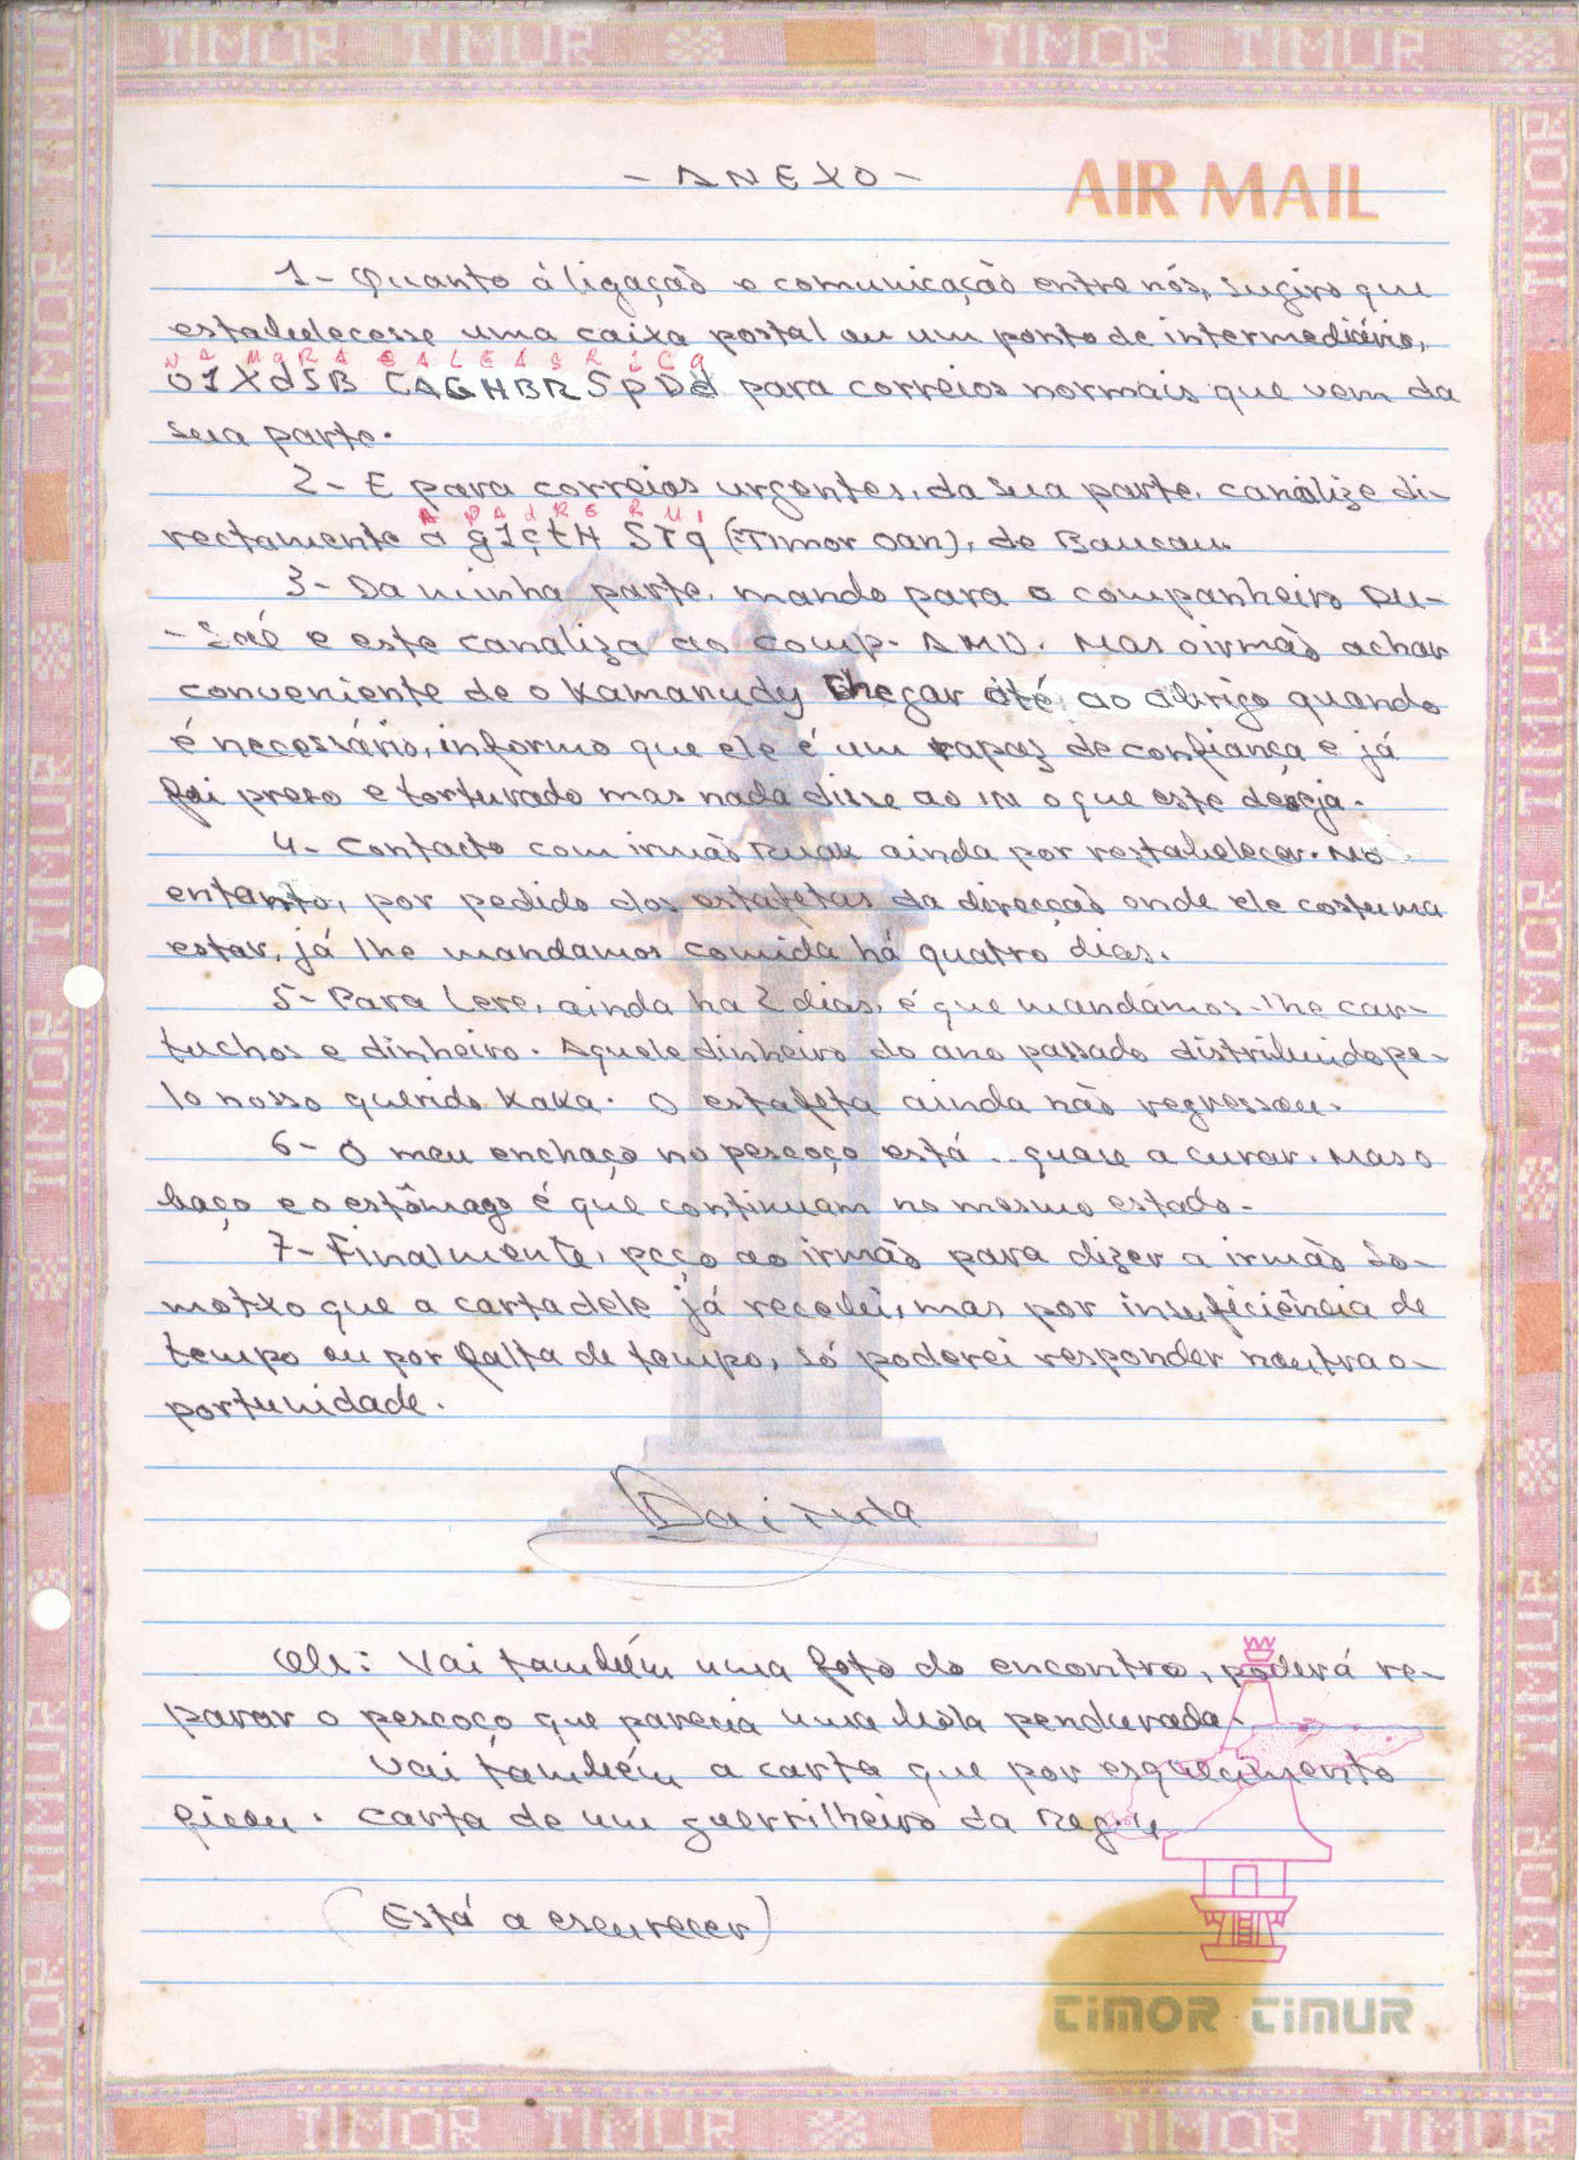 TIMOR TIMUR TIMOR TIMUR
AIR MAIL
- ANEXO -
1- Quanto á ligação e comunicação entre nós, sugiro que
estabelecesse uma caixa postal ou um ponto de intermediário,
para correios normais que vem da
sua parte.
2- E para correios urgentes, da sua parte, canalize di-
A PAdRE RUI
rectamente a g1çtH STq (Timor Oan), de Baucau.
3- Da minha parte, mando para o companheiro DU-
e este canaliza ao comp. AMU. Mas o irmão achar
conveniente de o Kamanudy chegar até ao abrigo quando
é necessário, informo que ele é um rapaz de confiança e já
foi preso e torturado mas nada disse ao IN o que este deseja.
4- Contacto com irmão Ruak ainda por restabelecer. No
entanto, por pedido dos estafetas da direcção onde ele costuma
estar, já lhe mandamos comida há quatro dias.
5- Para Lere, ainda ha 2 dias, é que mandámos-lhe car-
tuchos e dinheiro. Aquele dinheiro do ano passado distribuido pe-
lo nosso querido Kaka. O estafeta ainda não regressou.
6- O meu enchaço no pescoço está .. quase a curar. Mas o
baço e o estômago é que continuam no mesmo estado.
7- Finalmente, peço ao irmão para dizer a irmão So-
motxo que a carta dele já recebi, mas por insuficiência de
tempo ou por falta de tempo, só poderei responder noutra o-
portunidade.
Obs: Vai também uma foto do encontro, poderá re-
parar o pescoço que parecia uma bola pendurada.
Vai também a carta que por esquecimento
ficou. Carta de um guerrilheiro da
(Está a escurecer)
TIMOR TIMUR
TIMOR TIMUR TIMOR TIMUR